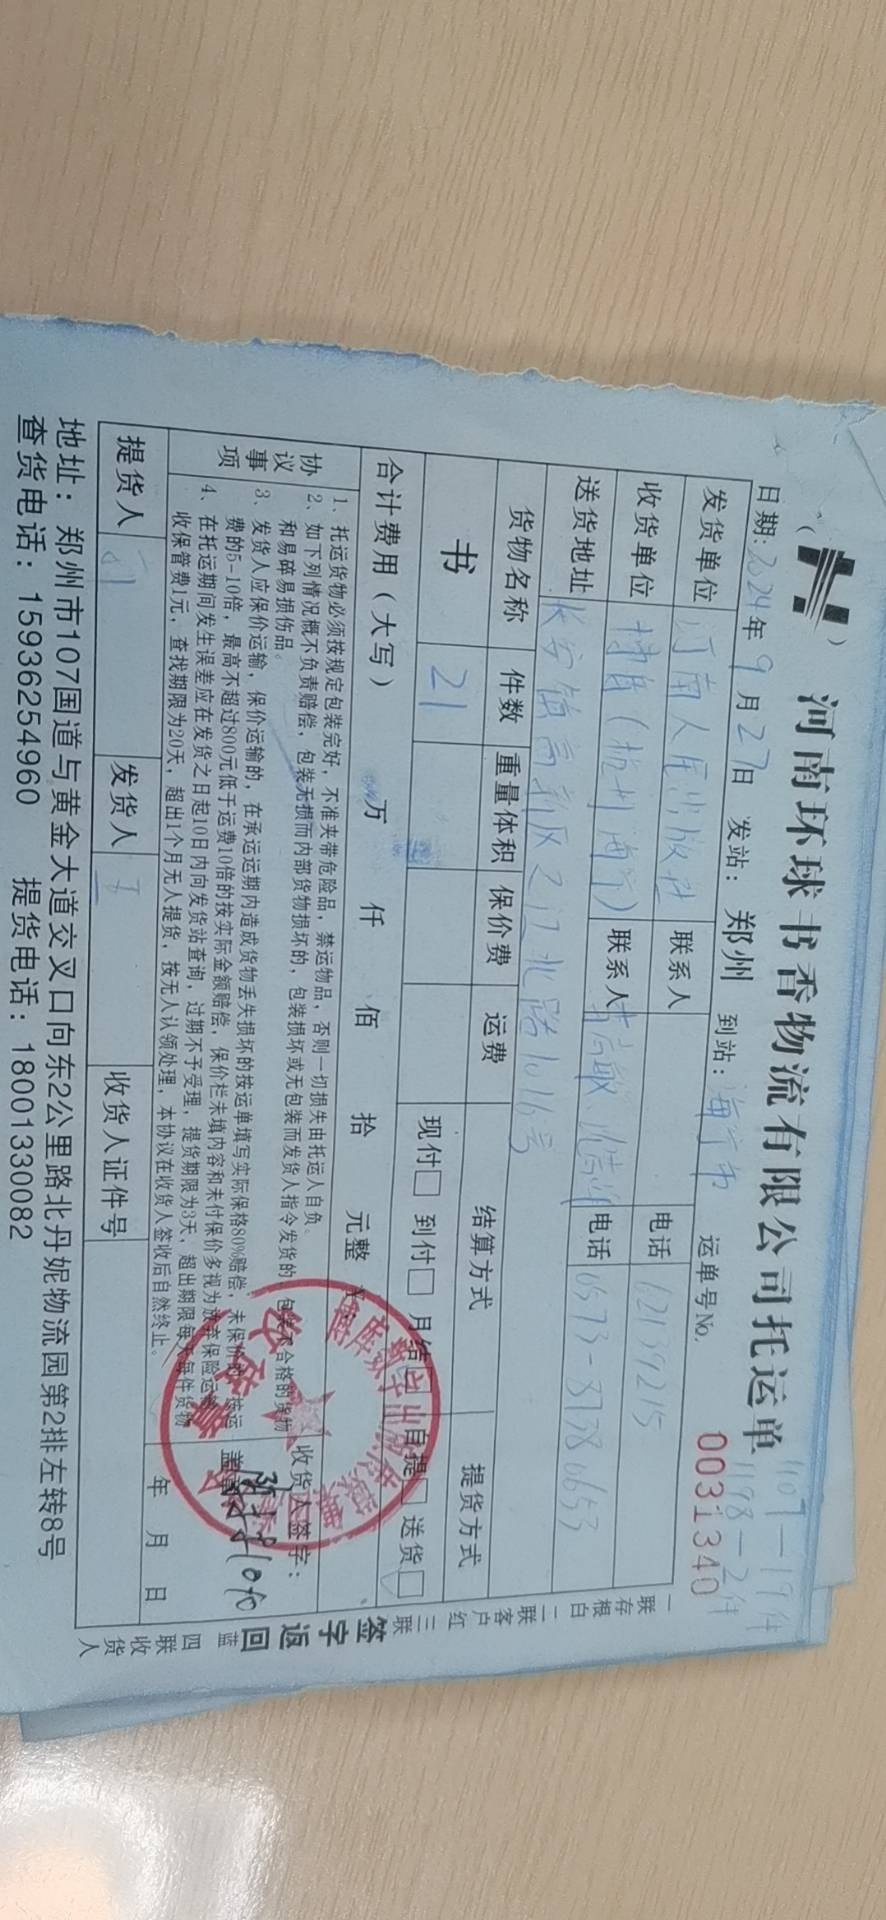 河南环球书香物流有限公司托运单
1107-19件
1198-2件
日期：2024年9月27日 发站：郑州 到站：海宁市 运单号No. 0031340
发货单位 河南人民出版社 联系人 电话 12139215
收货单位 博库（杭州海宁） 联系人 电话 0573-87380653
送货地址 长安镇高新区之江北路1016号
货物名称 件数 重量体积 保价费 运费 结算方式 提货方式
书 21 现付□ 到付□ 月结□ 自提□ 送货□
合计费用（大写） 万 仟 佰 拾 元整 ¥：
协议事项
1、托运货物必须按规定包装完好，不准夹带危险品，禁运物品，否则一切损失由托运人自负。
2、如下列情况概不负责赔偿，包装无损而内部货物损坏的，包装损坏或无包装而发货人指令发货的，包装不合格的货物
和易碎易损伤品。
3、发货人应保价运输，保价运输的，在承运运期内造成货物丢失损坏的按运单填写实际保格80%赔偿，未保价的，按运
费的5-10倍，最高不超过800元低于运费10倍的按实际金额赔偿，保价栏未填内容和未付保价多视为放弃保险运输
4、在托运期间发生误差应在发货之日起10日内向发货站查询，过期不予受理，提货期限为3天，超出期限每天每件货物
收保管费1元，查找期限为20天，超出1个月无人提货，按无人认领处理，本协议在收货人签收后自然终止。
收货人签字：
盖章
年 月 日
提货人 发货人 收货人证件号
地址：郑州市107国道与黄金大道交叉口向东2公里路北丹妮物流园第2排左转8号
查货电话：15936254960 提货电话：18001330082
一联存根白 二联客户红 三联签字返回蓝 四联收货人